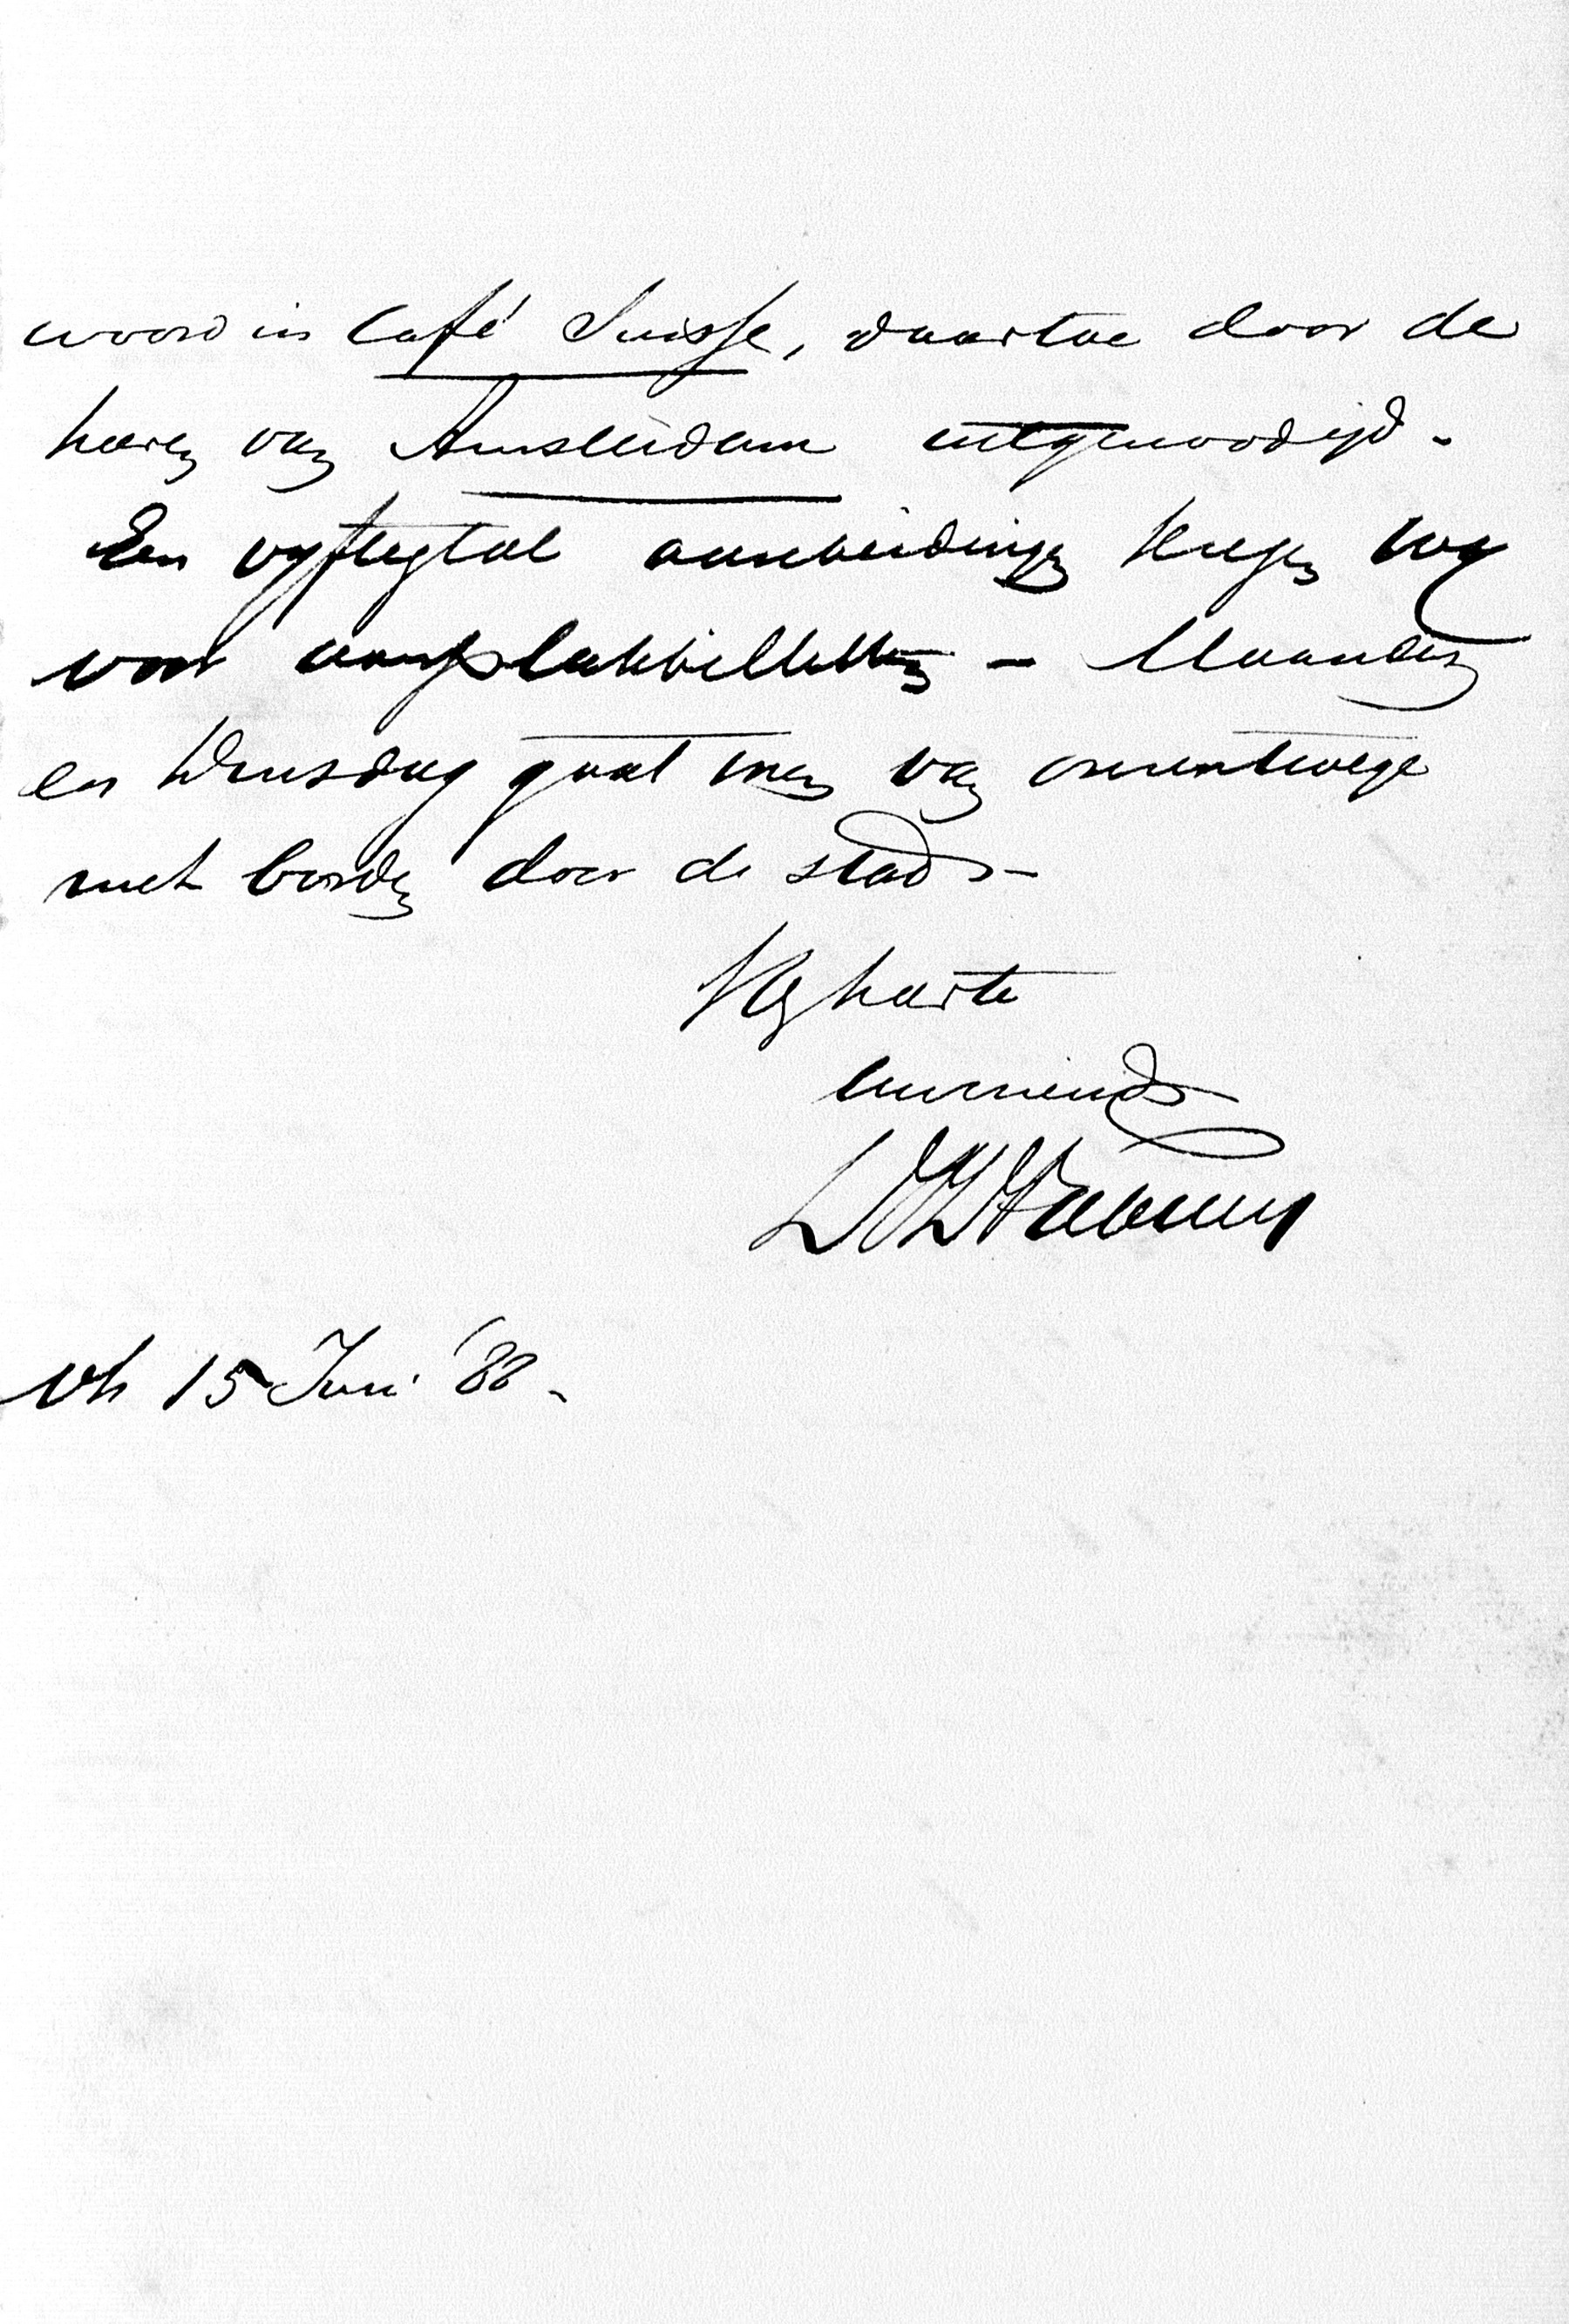 woord in Café Suisse, daartoe door de
heeren van Amsterdam uitgenoodigd -
Een vyftigtal aanbiedingen kregen wy
voor aanplakbilletten - Maandag
en Dinsdag gaat men van onzentwege
met borden door de stad -
Vyharte
uw vriend
15 Juni '88 -